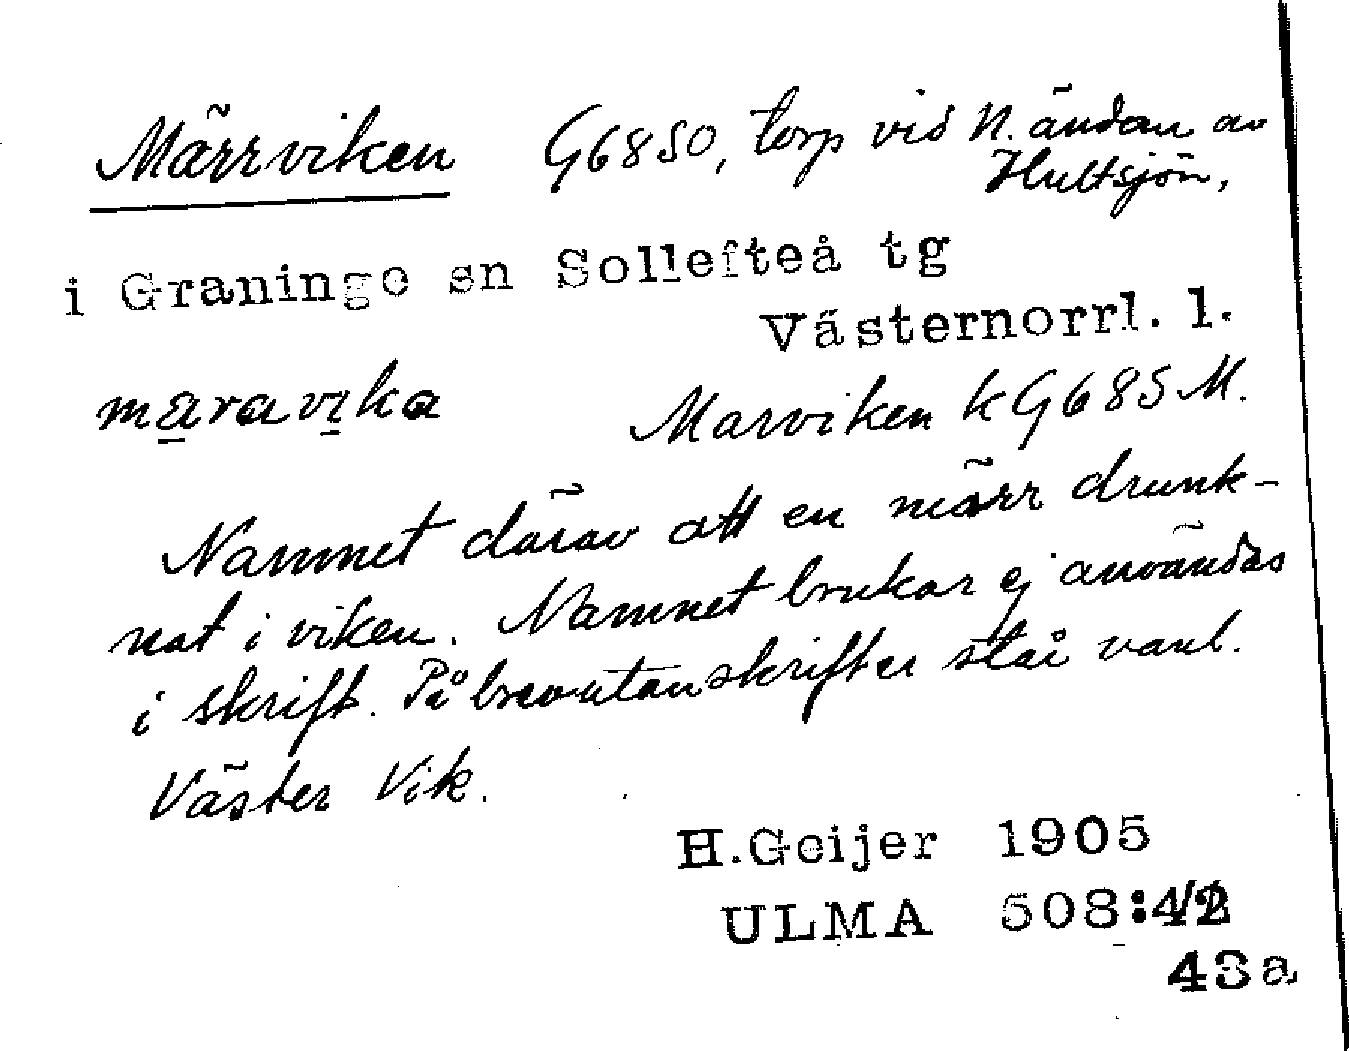 Märrviken G68SO, torp vid N. ändan av
Hultsjön,
i Graninge sn Sollefteå tg
Västernorrl. l.
maravika Marviken k G68S M.
Namnet därav att en märr drunk-
nat i viken. Namnet brukar ej användas
i skrift. På brevutanskrifter stå vanl.
Väster Vik.
H.Geijer 1905
ULMA 508:42
43a